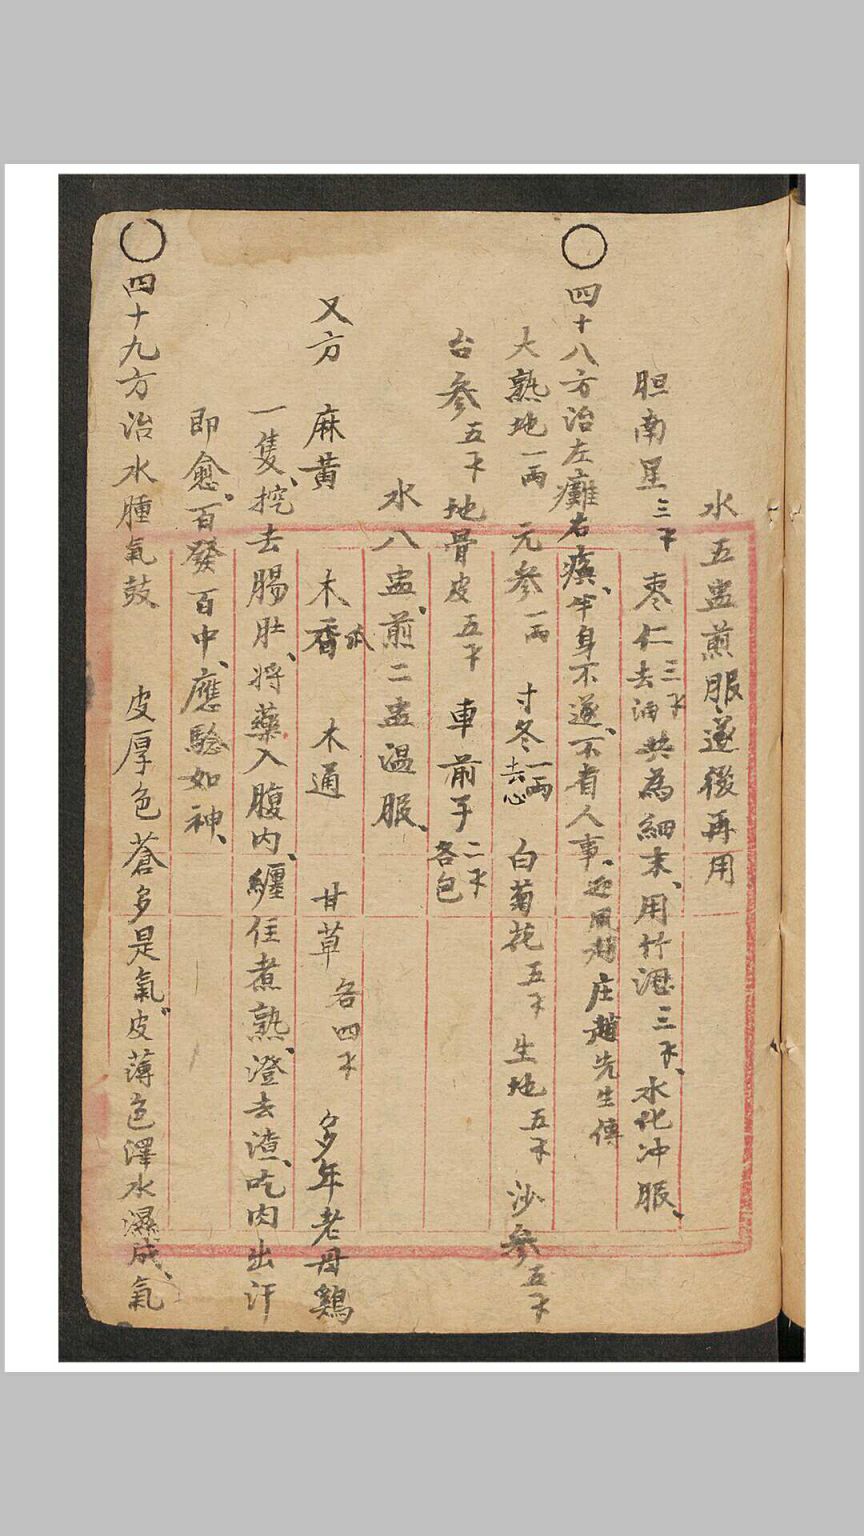 水五盅煎服、遂後再用
胆南星三千 枣仁三千去油 共為細末、用竹瀝三千、水化冲服、
〇四十八方治左癱右瘓、半身不遂、不省人事、迎風趙庄趙先生傳
大熟地一両 元參一両 寸冬一両去心 白菊花五千 生地五千 沙參五千
台參五千 地骨皮五千 車前子二千各包
水八盅、煎二盅温服、
又方 麻黄 木香 木通 甘草各四千 多年老母鷄
一隻、挖去腸肚、将藥入腹内、纒住煮熟、澄去渣、吃肉出汗
即愈。百發百中、應驗如神、
〇四十九方治水腫氣鼓 皮厚色蒼多是氣。皮薄色澤水濕成、氣